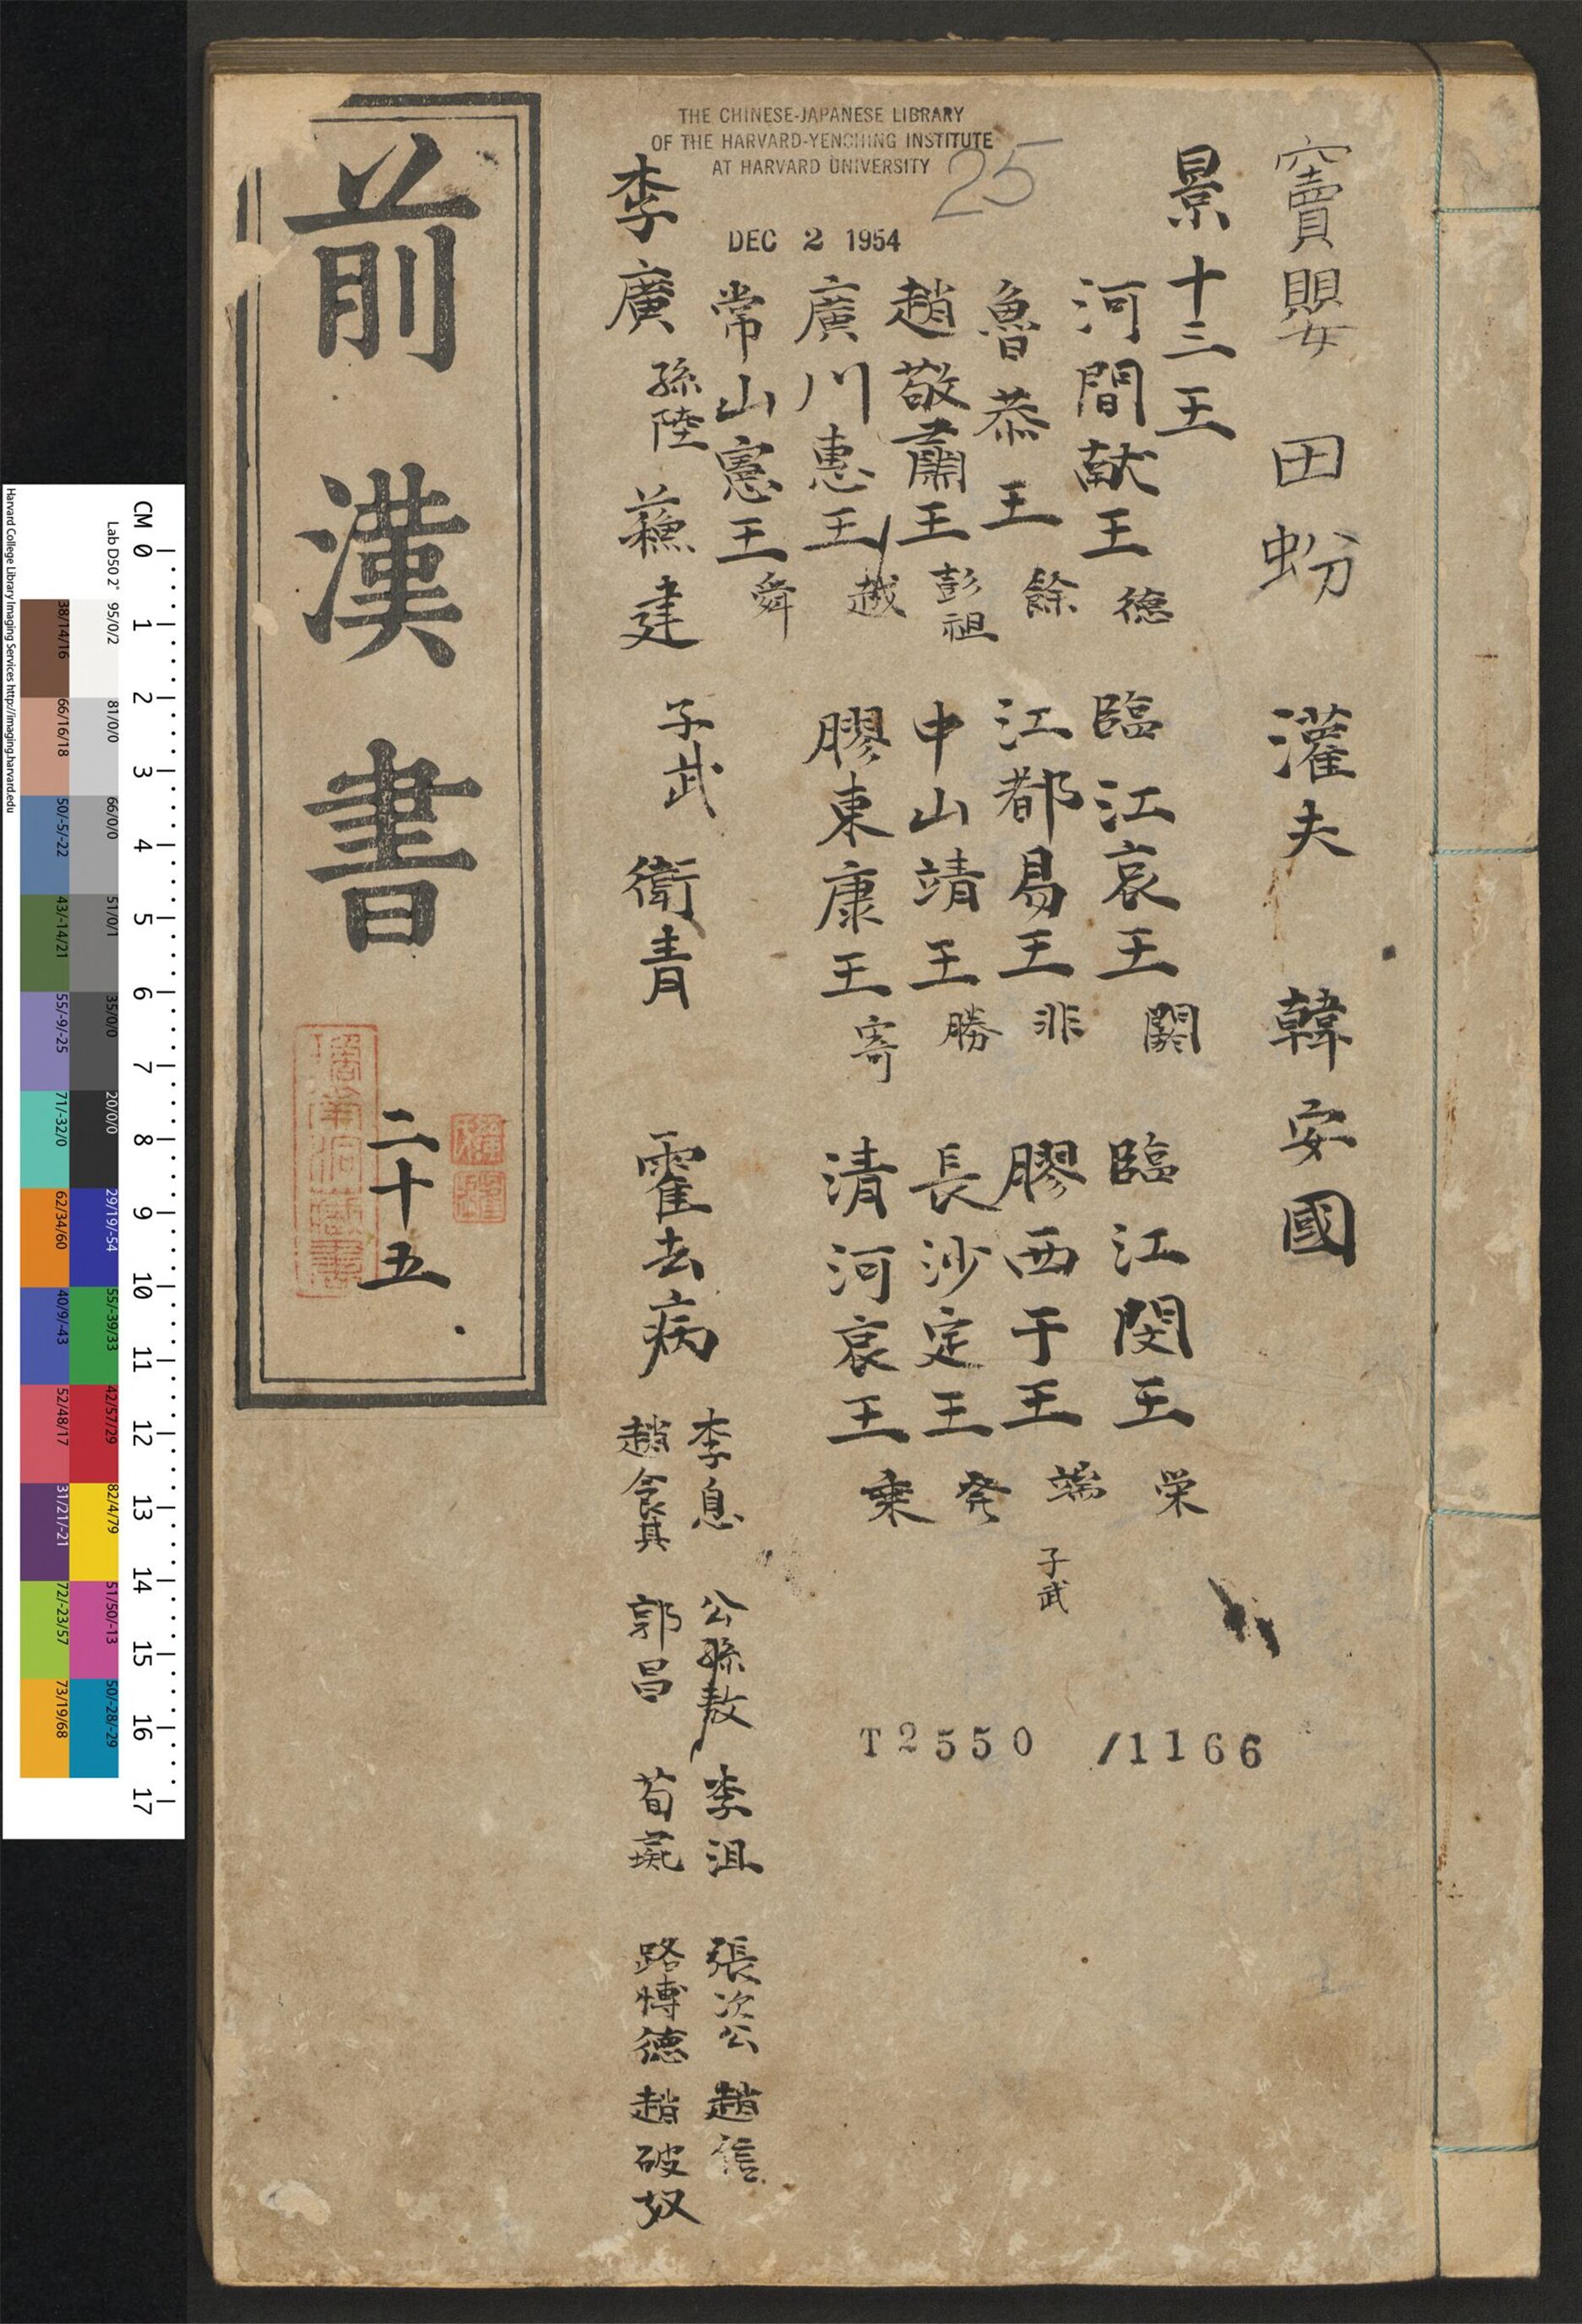 竇嬰 田蚡 灌夫 韓安國
景十三王
河間献王 德 臨江哀王 閼 臨江閔王 栄
魯恭王 餘 江都易王 非 膠西于王 端 子武
趙敬肅王 彭祖 中山靖王 勝 長沙定王 発
廣川惠王 越 膠東康王 寄 清河哀王 乗
常山憲王 舜
李廣 孫陸 蘓建 子武 衛青 霍去病
李息 公孫敖 李沮 張次公 趙信
趙食其 郭昌 荀彘 路博德 趙破奴
前漢書 二十五
THE CHINESE-JAPANESE LIBRARY
OF THE HARVARD-YENCHING INSTITUTE
AT HARVARD UNIVERSITY
25
DEC 2 1954
T2550 /1166
Harvard College Library Imaging Services http://imaging.harvard.edu
Lab D50 2°
CM 0 1 2 3 4 5 6 7 8 9 10 11 12 13 14 15 16 17
95/0/2 81/0/0 66/0/0 51/0/1 35/0/0 20/0/0 29/19/-54 55/-39/33 42/57/29 82/4/79 51/50/-13 50/-28/-29
38/14/16 66/16/18 50/-5/-22 43/-14/21 55/-9/-25 71/-32/0 62/34/60 40/9/-43 52/48/17 31/21/-21 72/-23/57 73/19/68